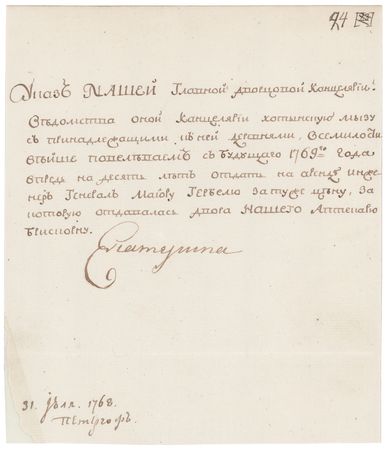 94
Указъ НАШЕЙ Главной дворцовой Канцеляріи.
Вѣдомства оной Канцеляріи хотынскую мызу
съ принадлежащими къ ней деревнями, всемилости
вѣйше повелѣваемъ съ будущаго 1769го года
впредь на десять лѣтъ отдать на аренду инже
неръ Генералъ Маіору Гербелю за туже цѣну, за
которую отдавалась двора НАШЕГО
Екатерина
31. Іюля. 1768.
Петергофъ.